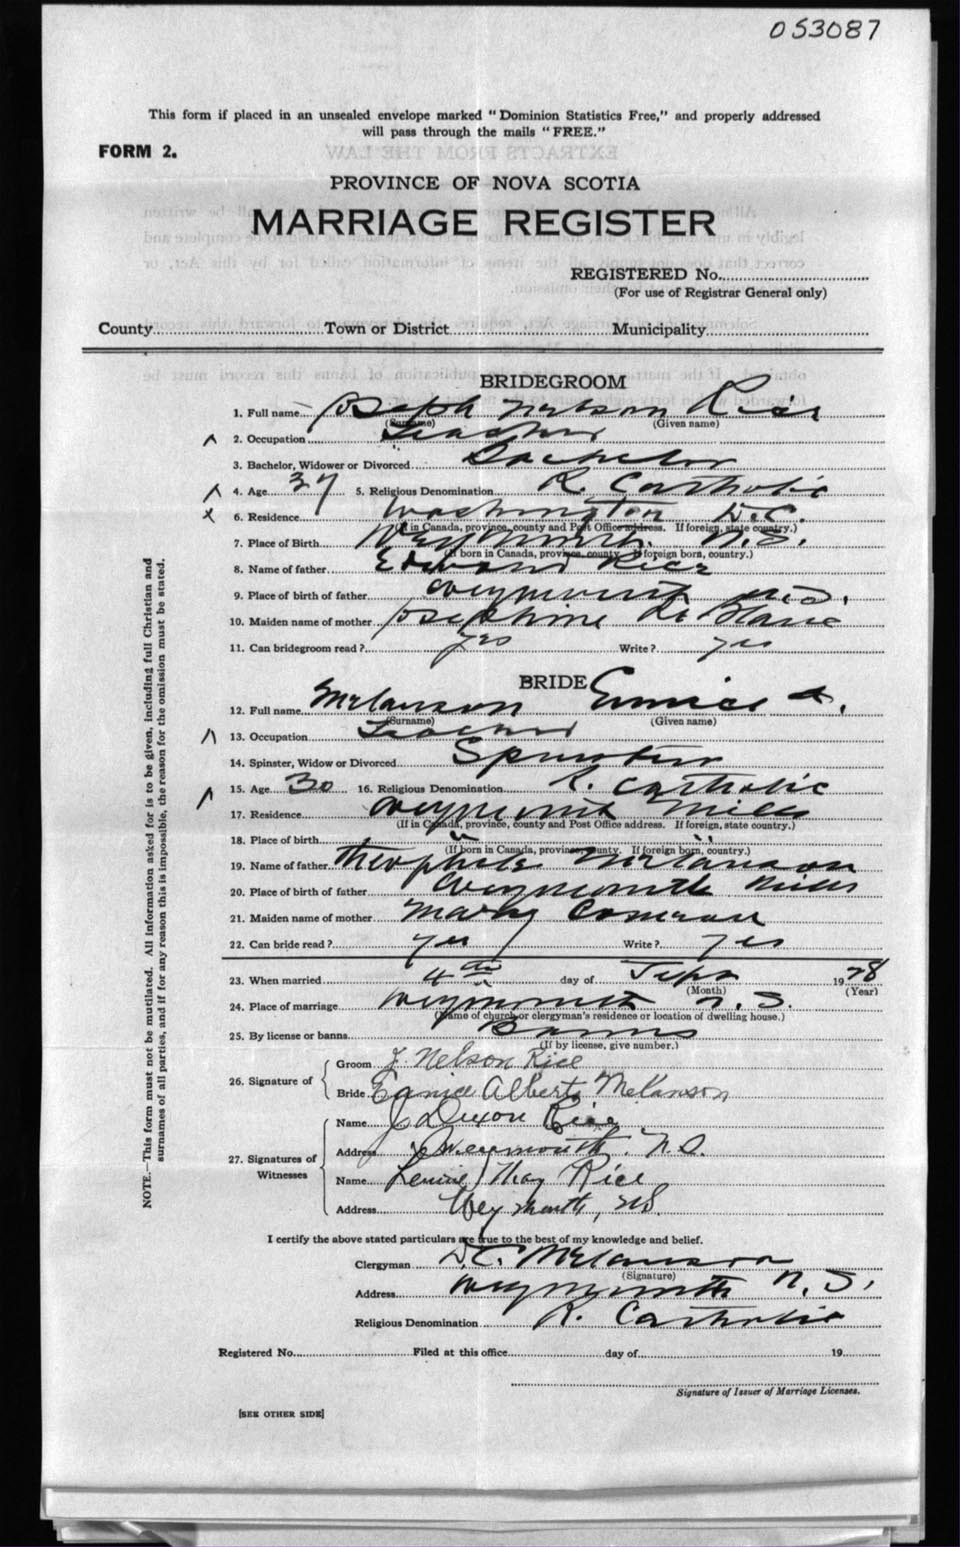 053087
This form if placed in an unsealed envelope marked "Dominion Statistics Free," and properly addressed
will pass through the mails "FREE."
FORM 2.
PROVINCE OF NOVA SCOTIA
MARRIAGE REGISTER
REGISTERED No.
(For use of Registrar General only)
County Town or District Municipality
BRIDEGROOM
1. Full name Joseph Nelson Rice
(Surname) (Given name)
2. Occupation Teacher
3. Bachelor, Widower or Divorced Bachelor
4. Age 37 5. Religious Denomination R. Catholic
6. Residence Washington D.C.
(If in Canada, province, county and Post Office address. If foreign, state country.)
7. Place of Birth Weymouth N.S.
(If born in Canada, province, county. If foreign born, country.)
8. Name of father Edward Rice
9. Place of birth of father Weymouth N.S.
10. Maiden name of mother Josephine Le Blanc
11. Can bridegroom read? yes Write? yes
BRIDE
12. Full name Melanson Eunice A.
(Surname) (Given name)
13. Occupation Teacher
14. Spinster, Widow or Divorced Spinster
15. Age 30 16. Religious Denomination R. Catholic
17. Residence Weymouth Mills
(If in Canada, province, county and Post Office address. If foreign, state country.)
18. Place of birth " "
(If born in Canada, province, county. If foreign born, country.)
19. Name of father Theophile Melanson
20. Place of birth of father Weymouth Mills
21. Maiden name of mother Mary Comeau
22. Can bride read? yes Write? yes
23. When married 4th day of Sept 1928
(Month) (Year)
24. Place of marriage Weymouth N.S.
(Name of church or clergyman's residence or location of dwelling house.)
25. By license or banns Banns
(If by license, give number.)
26. Signature of
Groom J. Nelson Rice
Bride Eunice Alberta Melanson
27. Signatures of Witnesses
Name J Dixon Rice
Address Weymouth, N.S.
Name May Rice
Address Weymouth, N.S.
I certify the above stated particulars are true to the best of my knowledge and belief.
Clergyman D.C. Melanson
(Signature)
Address Weymouth N.S.
Religious Denomination R. Catholic
Registered No. Filed at this office day of 19
Signature of Issuer of Marriage Licenses.
[SEE OTHER SIDE]
NOTE.—This form must not be mutilated. All information asked for is to be given, including full Christian and
surnames of all parties, and if for any reason this is impossible, the reason for the omission must be stated.